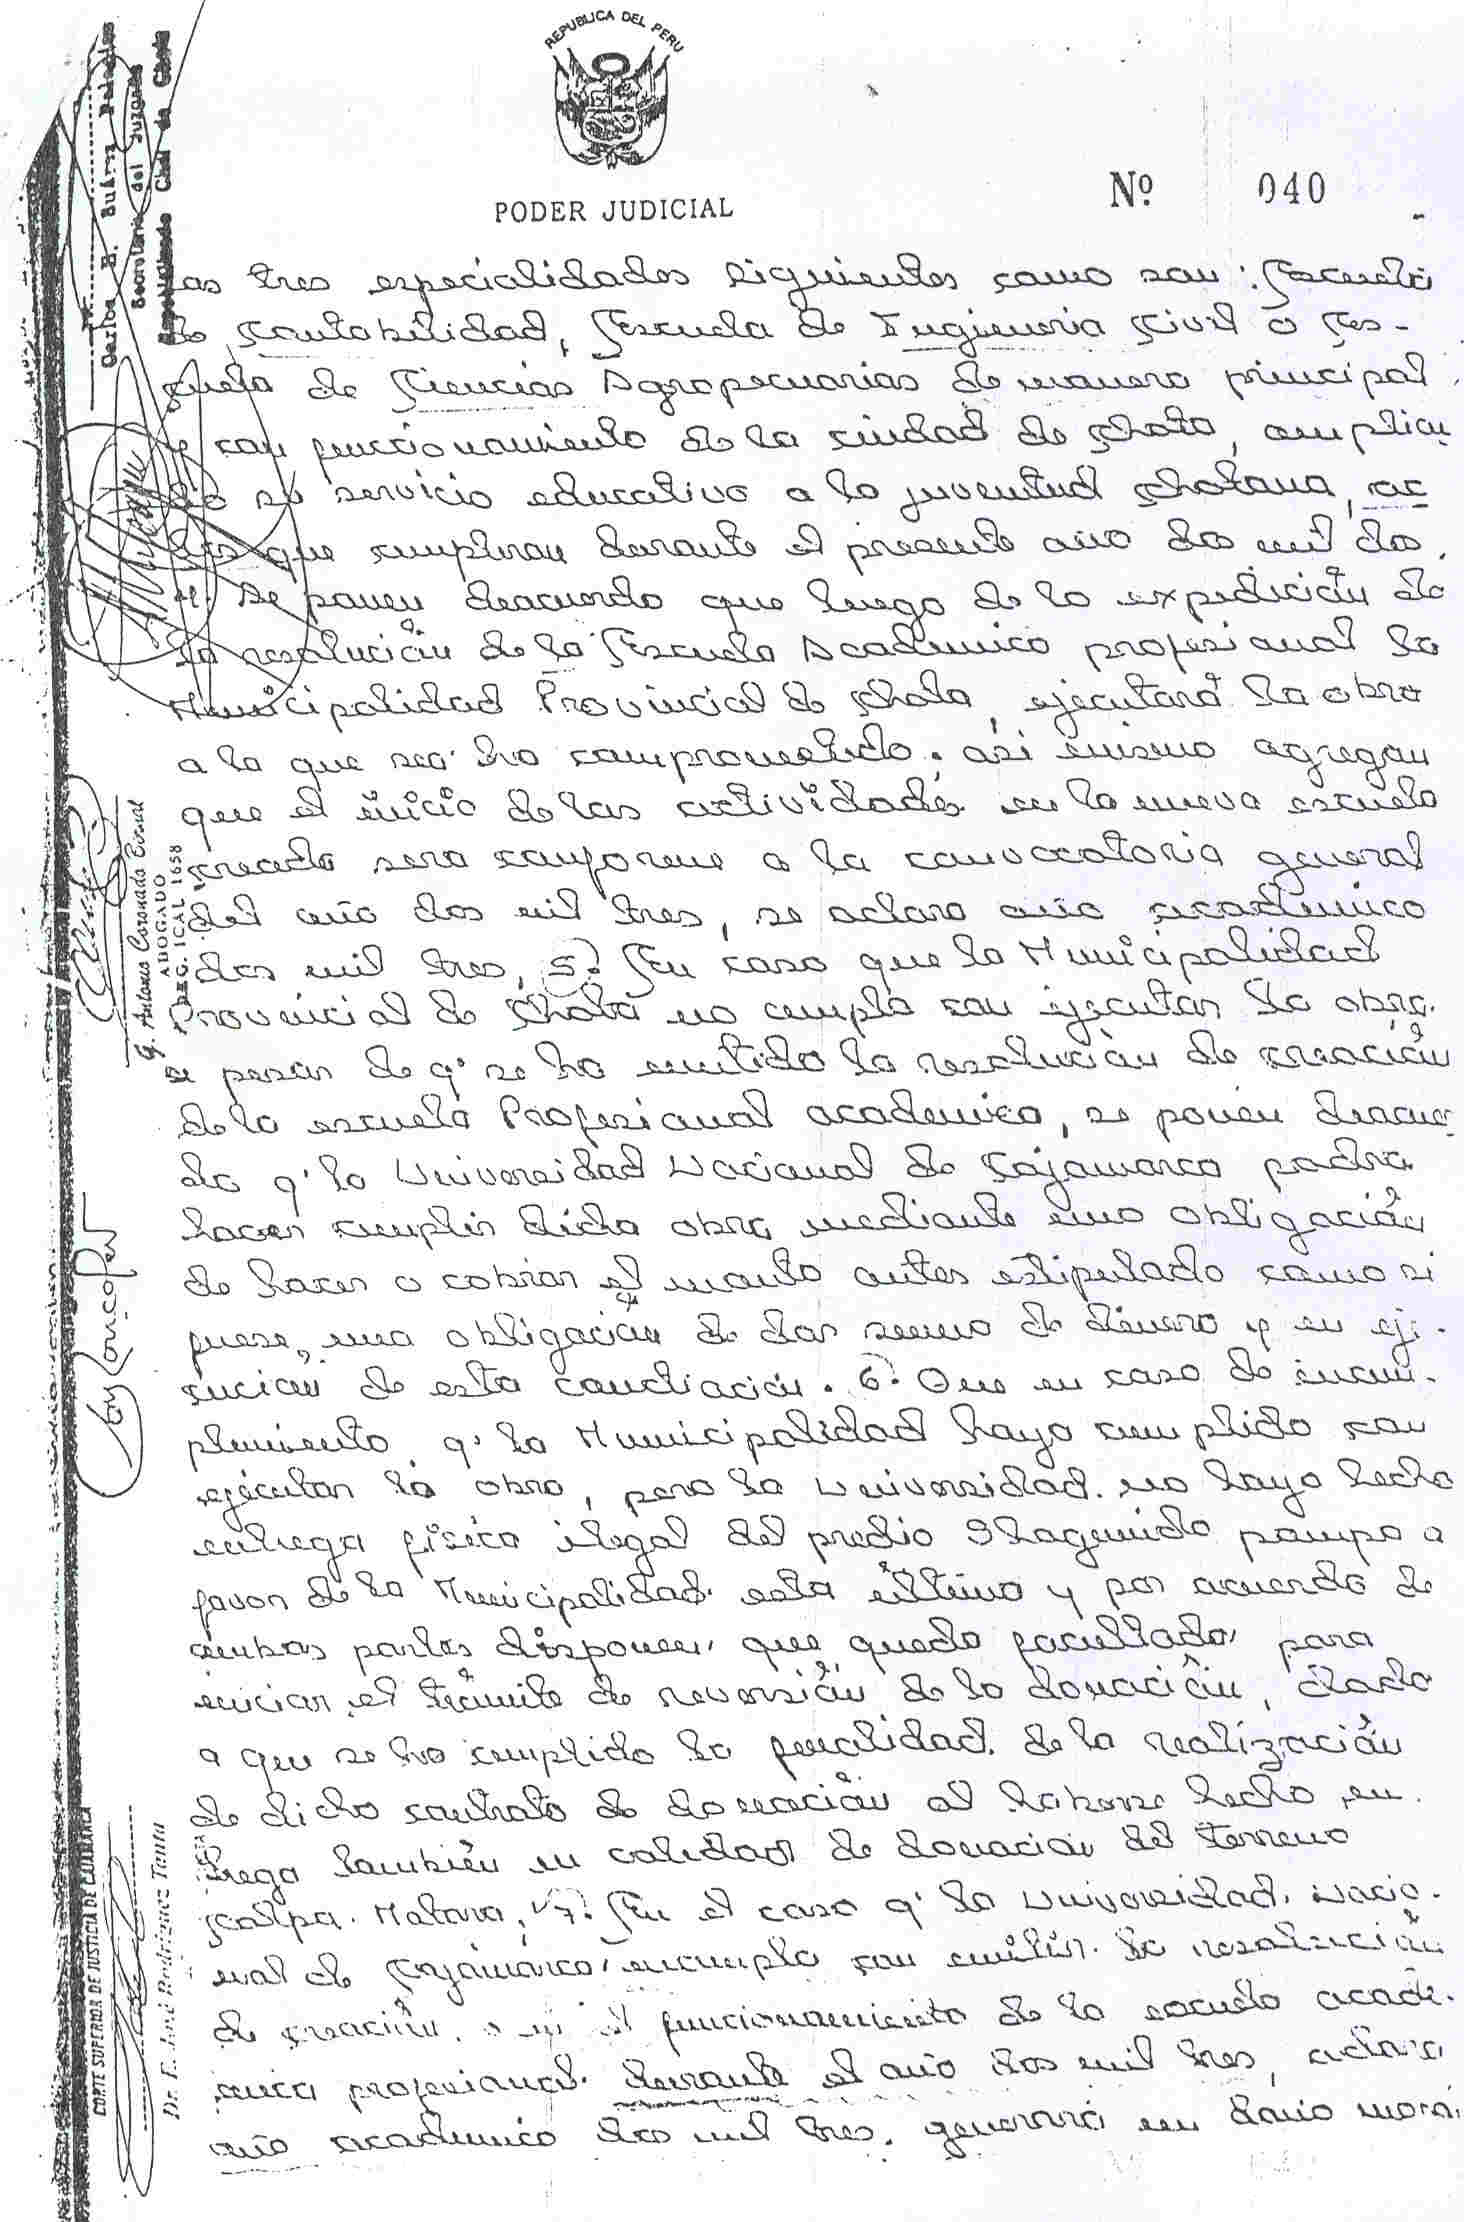 REPUBLICA DEL PERU
PODER JUDICIAL
Nº 040
las tres especialidades siguientes como son: Escuela
de Contabilidad, Escuela de Ingieneria Civil o Es-
cuela de Ciencias Agropecuarias de manera principal
y con funcionamiento de la ciudad de Chota, amplian
do su servicio educativo a la juventud chotana, ac
tos que cumpliran durante el presente año dos mil dos.
4. Se ponen deacuerdo que luego de la expedición de
la resolución de la Escuela Academico profesional la
Municipalidad Provincial de Chota, ejecutará la obra
a la que sea ha comprometido. asi mismo agregan
que el inicio de las actividades en la nueva escuela
creada sera conforme a la convocatoria general
del año dos mil tres, se aclara año academico
dos mil tres, 5. En caso que la Municipalidad
Provincial de Chota no cumpla con ejecutar la obra.
a pesar de q' se ha emitido la resolución de creación
de la escuela Profesional academico, se ponen deacuer
do q' la Universidad Nacional de Cajamarca podra
hacer cumplir dicha obra mediante una obligación
de hacer o cobrar el monto antes estipulado como si
fuese, una obligación de dar suma de dinero y en eje-
cución de esta conciliación. 6. Que en caso de incum-
plimiento q' la Municipalidad haya cumplido con
ejecutar la obra, pero la Universidad. no haya hecho
entrega física ilegal del predio Shagamido pampa a
favor de la Municipalidad. esta último y por acuerdo de
ambas partes disponen que queda facultado para
iniciar el trámite de reversión de la donación, dado
a que se ha cumplido la penalidad. de la realización
de dicho contrato de donación al haberse hecho en-
trega también en calidad de donación del terreno
Colpa. Matara, 7. En el caso q' la Universidad. Nacio-
nal de Cajamarca, incumpla con emitir. la resolución
de creación, el funcionamiento de la escuela acade-
mica profesional. durante el año dos mil tres, aclara
año academico dos mil tres. generará un daño moral
Carlos H. Suárez
Secretario del Juzgado
Especializado Civil de Chota
G. Antonio Coronado Bernal
ABOGADO
REG. ICAL 1658
CORTE SUPERIOR DE JUSTICIA DE CAJAMARCA
Dr. E. José Rodríguez Tanta